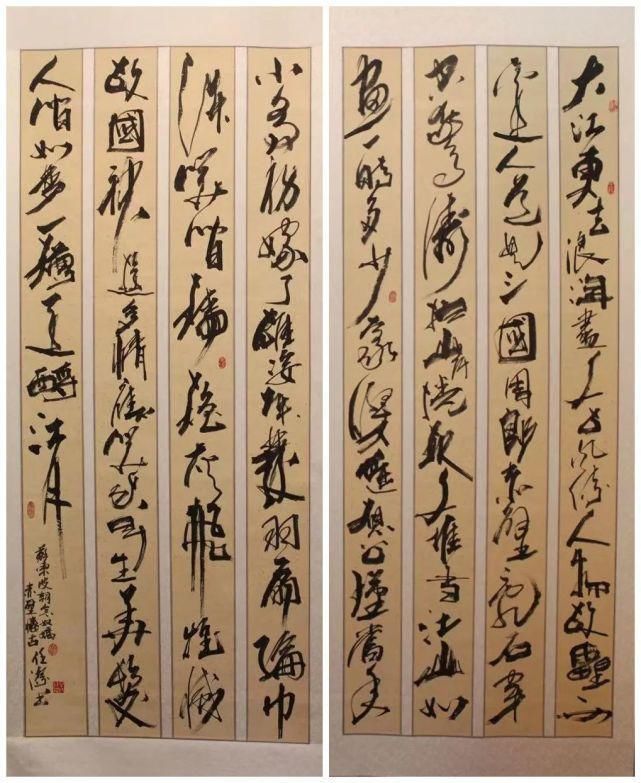 大江東去浪淘盡千古風流人物故壘西
邊人道是三國周郎赤壁亂石穿
空驚濤拍岸捲起千堆雪江山如
畫一時多少豪傑遙想公瑾當年
小喬初嫁了雄姿英發羽扇綸巾
談笑間檣櫓灰飛煙滅
故國神遊多情應笑我早生華髮
人間如夢一樽還酹江月
蘇東坡詞念奴嬌
赤壁懷古